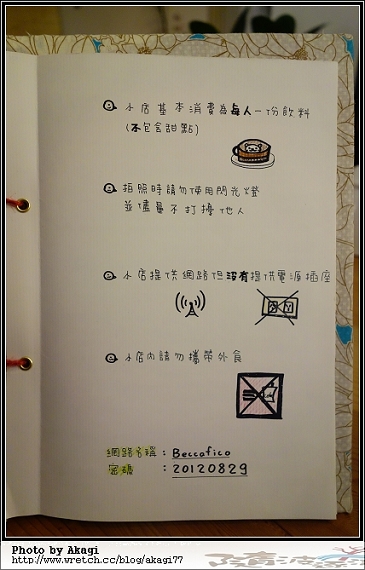 小店基本消費為每人一份飲料
(不包含甜點)
拍照時請勿使用閃光燈
並儘量不打擾他人
小店提供網路但沒有提供電源插座
小店內請勿攜帶外食
網路名稱：Beccafico
密碼：20120829
Photo by Akagi
http://www.wretch.cc/blog/akagi77